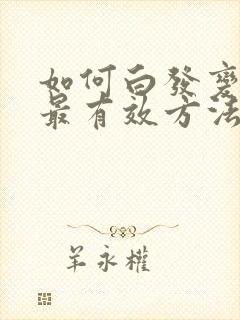 如何白發變
最有效方法
羊永權